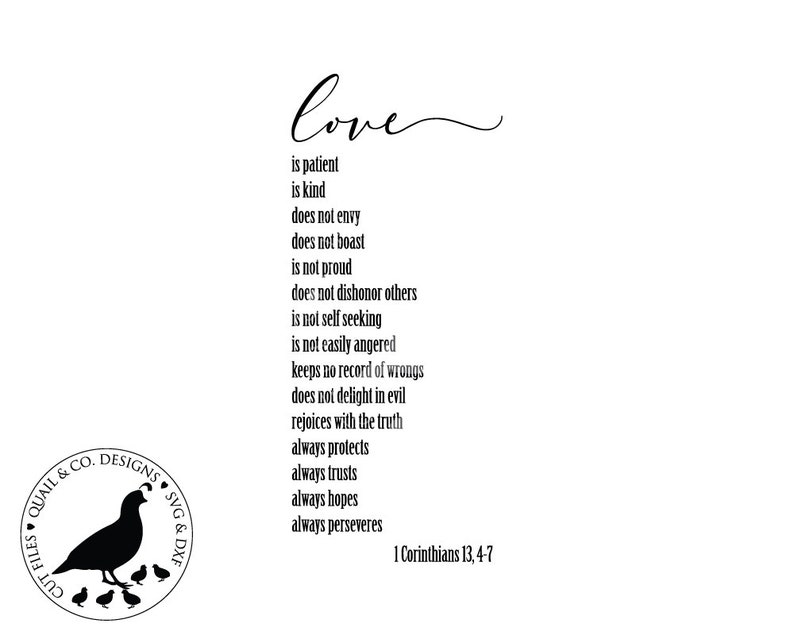 love
is patient
is kind
does not envy
does not boast
is not proud
does not dishonor others
is not self seeking
is not easily angered
keeps no record of wrongs
does not delight in evil
rejoices with the truth
always protects
always trusts
always hopes
always perseveres
1 Corinthians 13, 4-7
CUT FILES ♥ QUAIL & CO. DESIGNS ♥ SVG & DXF